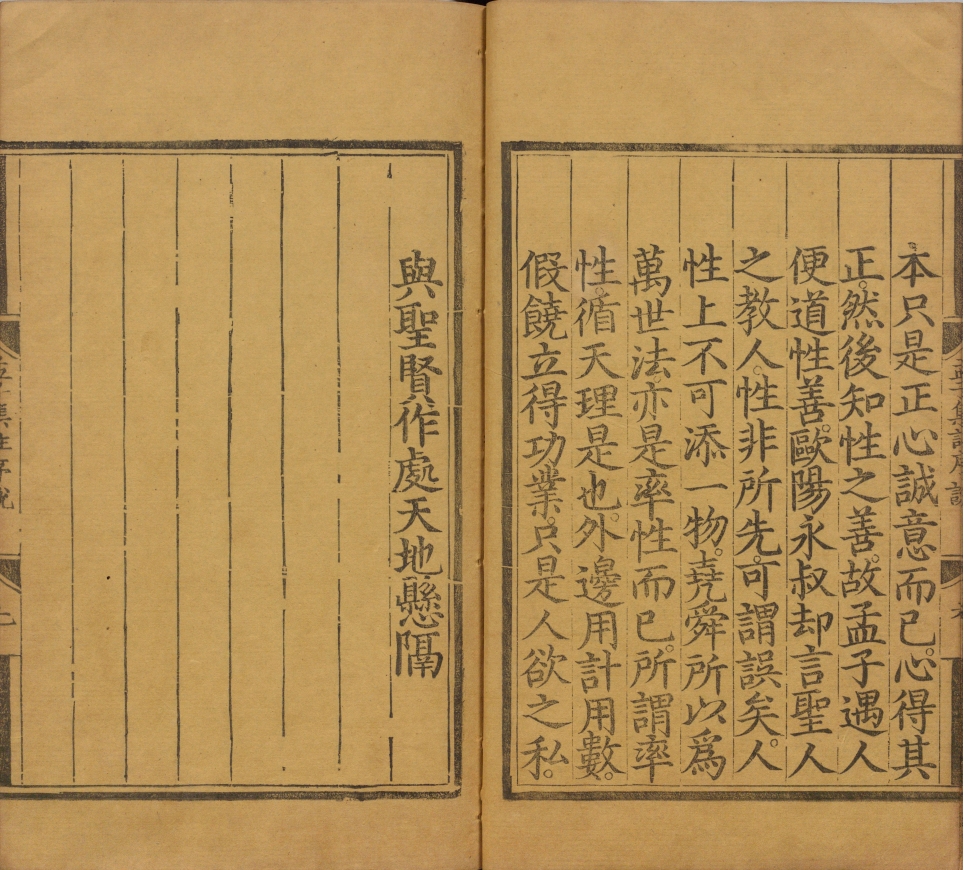 本只是正心誠意而已。心得其
正。然後知性之善。故孟子遇人
便道性善。歐陽永叔却言聖人
之教人。性非所先。可謂誤矣。人
性上不可添一物。堯舜所以爲
萬世法亦是率性而已。所謂率
性。循天理是也。外邊用計用數。
假饒立得功業。只是人欲之私。
與聖賢作處天地懸隔